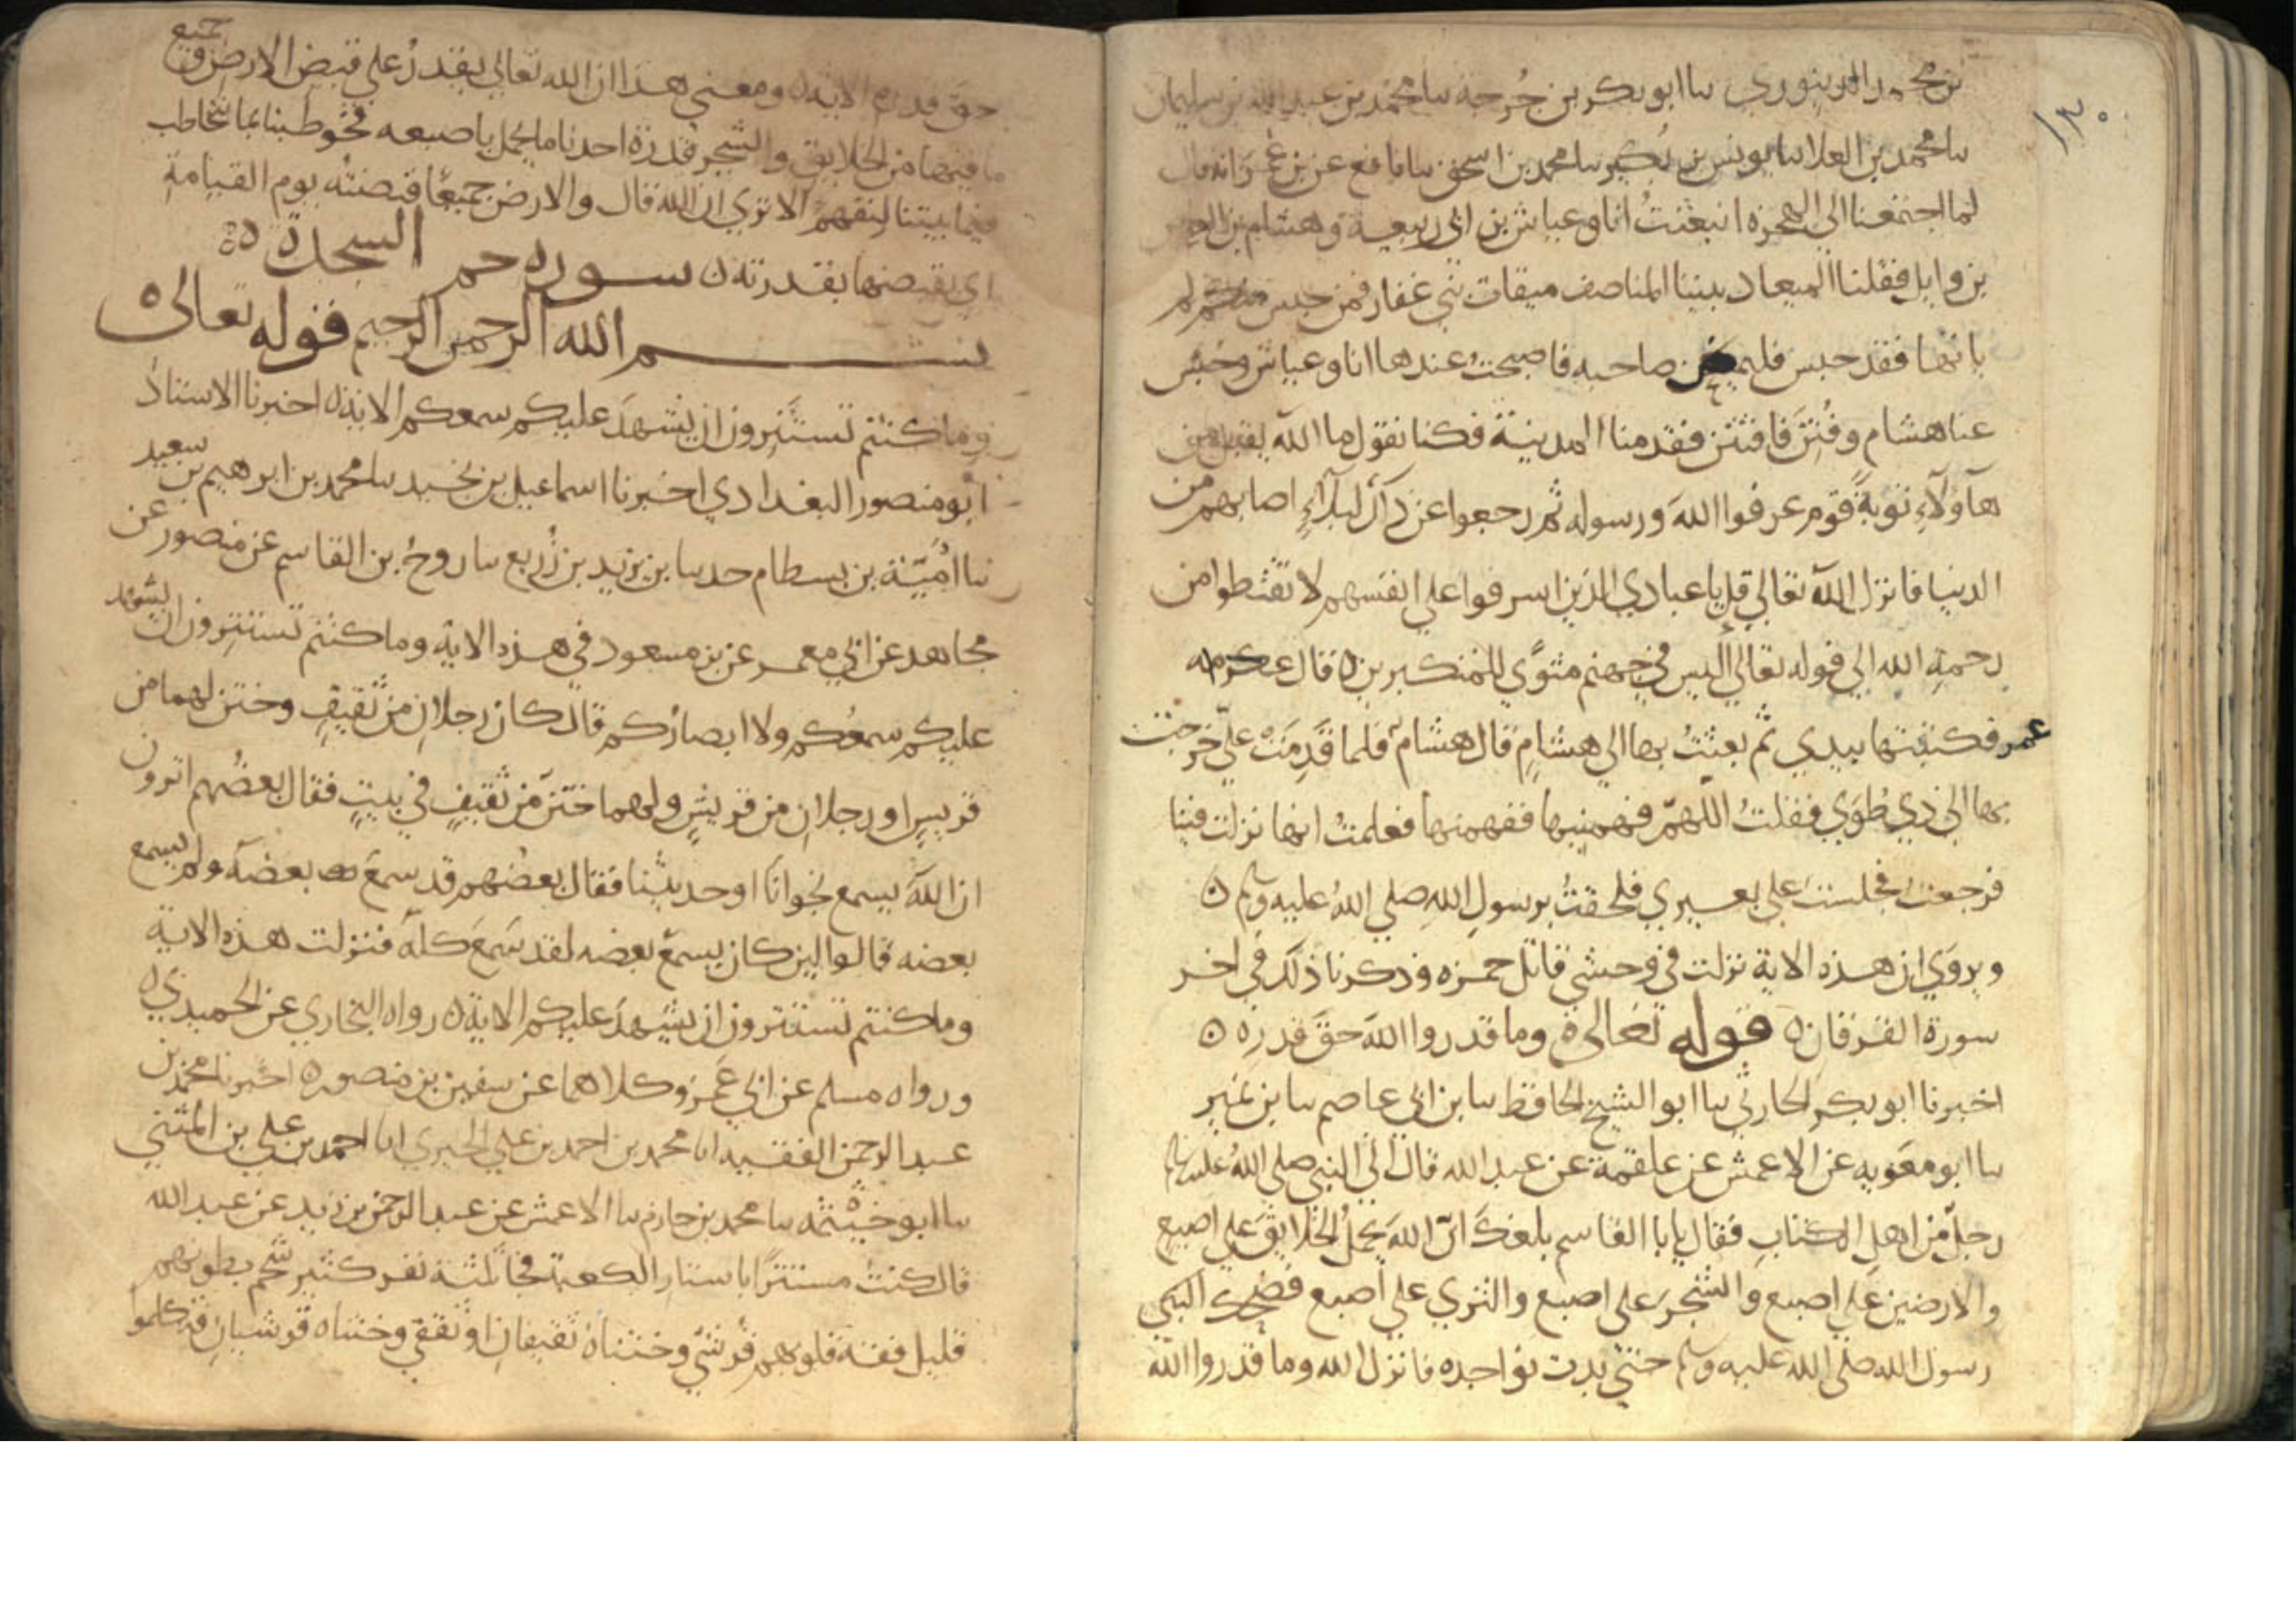 ١٣٠
بن محمد الدينوري سا ابو بكر بن خُرجة سا محمد بن عبد الله بن سليمان
سا محمد بن العلا سا يونس بن بُكير سا محمد بن اسحق سا نافع عن بن عمر انه قال
لما اجتمعنا الي الهجرة انبعثتُ انا وعياش بن ابي ربيعة وهشام بن العاص
بن وايل فقلنا الميعاد بيننا المناصف ميقات بني غفار فمن حبس منكم لم
ياتها فقد حبس فليمض صاحبه فاصبحتُ عندها انا وعياش وحبس
عنا هشام وفُتِنَ فافتتن فقدمنا المدينة فكنا نقول ما الله بقابل من
هآؤلآءِ توبةً قوم عرفوا اللهَ ورسوله ثم رجعوا عن ذلك لبلآءٍ اصابهم من
الدنيا فانزل الله تعالي قل يا عبادي الذين اسرفوا علي انفسهم لا تقنطوا من
رحمةِ الله الي قوله تعالي أليس في جهنم مثوًي للمتكبرين ٥ قال
عمر فكتبتها بيدي ثم بعثتُ بها الي هشامٍ قال هشام فلما قَدِمَتْ عليّ خرجت
بها الي ذي طُوَي فقلتُ اللهمّ فهمنيها ففهمتها فعلمتُ انها نزلت فينا
فرجعتُ فجلستُ علي بعيري فلحقتُ برسولِ اللهِ صلي اللهُ عليه وسلم ٥
ويروَي ان هذه الاية نزلت في وحشي قاتل حمزه وذكرنا ذلك في اخر
سورة الفرقان ٥ قوله تعالى ٥ وما قدروا اللهَ حقَّ قدره ٥
اخبرنا ابو بكر الحارثي سا ابو الشيخ الحافظ سا بن ابي عاصم سا بن نمير
سا ابو معَويه عن الاعمش عن علقمة عن عبد الله قال اتَي النبي صلي اللهُ عليه وسلم
رجلٌ من اهلِ الكتابِ فقال يابا القاسم بلغكَ انّ اللهَ يحملُ الخلايقَ علي اصبع
والارضين علي اصبع والشجرَ علي اصبع والثري علي اصبع فضحك النبي
رسول الله صلي الله عليه وسلم حتي بدت نواجده فانزل الله وما قدروا الله
حقَّ قدره الاية ٥ ومعني هذا ان الله تعالي يقدرُ علي قبض الارض وجميع
ما فيها من الخلايق والشجر قدرة احدنا ما يحمل باصبعه فخوطبنا بما نتخاطب
فيما بيننا لنفهم الا تري ان الله قال والارض جميعًا قبضتُه يوم القيامةِ
اي يقبضها بقدرته ٥ سورة حم السجدة ٥
بسم الله الرحمن الرحيم قوله تعالى ٥
وما كنتم تستَتِرون ان يشهدَ عليكم سمعكم الاية ٥ اخبرنا الاستاذ
ابو منصور البغدادي اخبرنا اسماعيل بن نجيد سا محمد بن ابرهيم بن سعيد
سا اُمَيّة بن بسطام حدسا بن يزيد بن زُريع سا روحُ بن القاسم عن منصور عن
مجاهد عن ابي معمر عن بن مسعود في هذه الاية وما كنتم تستترون ان يشهد
عليكم سمعُكم ولا ابصاركم قال كان رجلانِ من ثَقيفٍ وختن لهما من
قريسٍ او رجلانِ من قريشٍ ولهما ختَنٌ من ثقيفٍ في بيتٍ فقال بعضُهم اترون
ان اللهَ يسمع نجوانا او حديثنا فقال بعضُهم قد سمعَ بعضَه ولم يسمع
بعضه قالوا لين كان يسمعُ بعضه لقد سَمعَ كلَه فنزلت هذه الاية
وما كنتم تستترون ان يشهدَ عليكم الاية ٥ رواه البخاري عن الحميدي ٥
ورواه مسلم عن ابي عُمَر وكلاهما عن سفين بن منصور ٥ اخبرنا محمد بن
عبد الرحمن الفقيه انا محمد بن احمد بن علي الحيري انا احمد بن علي بن المثني
سا ابو خيثمه سا محمد بن حازم سا الاعمش عن عبد الرحمن بن زيد عن عبد الله
قال كنتُ مستترًا باستارِ الكعبة فجا ثلثة نفر كثير شحم بطونهم
قليل فقه قلوبهم قُرشيّ وختناهُ ثقيفانِ او ثقفيّ وختناه قرشيانِ فتكلموا